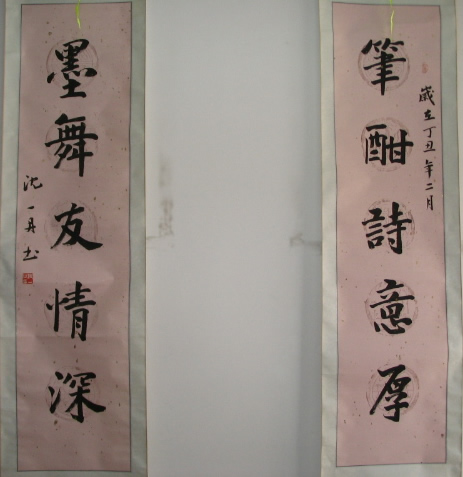 歲在丁丑年二月
筆酣詩意厚
墨舞友情深
沈一丹書